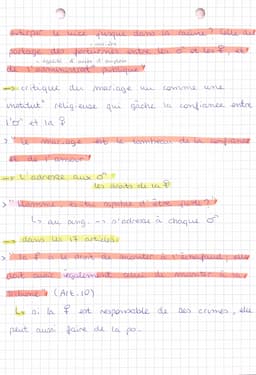 extirper le vice jusque dans la racine ? celle du
partage des fortunes entre les ♂ et les ♀, et
de l'administrat° publique"
-> critique du mariage vu comme une
institut° religieuse qui gâche la confiance entre
l'♂ et la ♀
> "le mariage est le tombeau de la confiance
et de l'amour"
-> L'adresse aux ♂
les droits de la ♀
> "Homme, es-tu capable d'être juste ?"
↳ au sing. -> s'adresse à chaque ♂
-> dans les 17 articles.
> "la ♀ a le droit de monter à l'échafaud, elle
doit avoir également celui de monter à la
tribune" (Art. 10)
↳ si la ♀ est responsable de ses crimes, elle
peut aussi faire de la po.